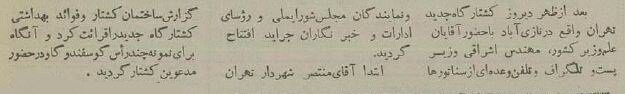 بعد ازظهر دیروز کشتارگاه جدید
تهران واقع درنازی آباد باحضور آقایان
علم وزیر کشور، مهندس اشراقی وزیر
پست و تلگراف و تلفن وعده‌ای از سناتورها
ونمایندگان مجلس شورایملی و رؤسای
ادارات و خبر نگاران جراید افتتاح
گردید.
ابتدا آقای منتصر شهردار تهران
گزارش ساختمان کشتار وفوائد بهداشتی
کشتارگاه جدید را قرائت کرد و آنگاه
برای نمونه چند رأس گوسفند و گاو در حضور
مدعوین کشتار گردید .